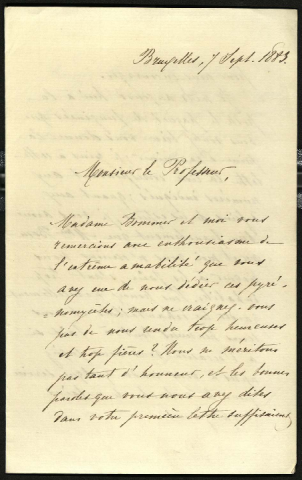 Bruxelles, 7 Sept. 1883.
Monsieur le Professeur,
Madame Bommer et moi vous
remercions avec enthousiasme de
l'extrême amabilité que vous
avez eue de nous dédier ces pyré-
-nomycètes; mais ne craignez-vous
pas de nous rendre trop heureuses
et trop fières? Nous ne méritons
pas tant d'honneur, et les bonnes
paroles que vous nous avez dites
dans votre première lettre suffisaient